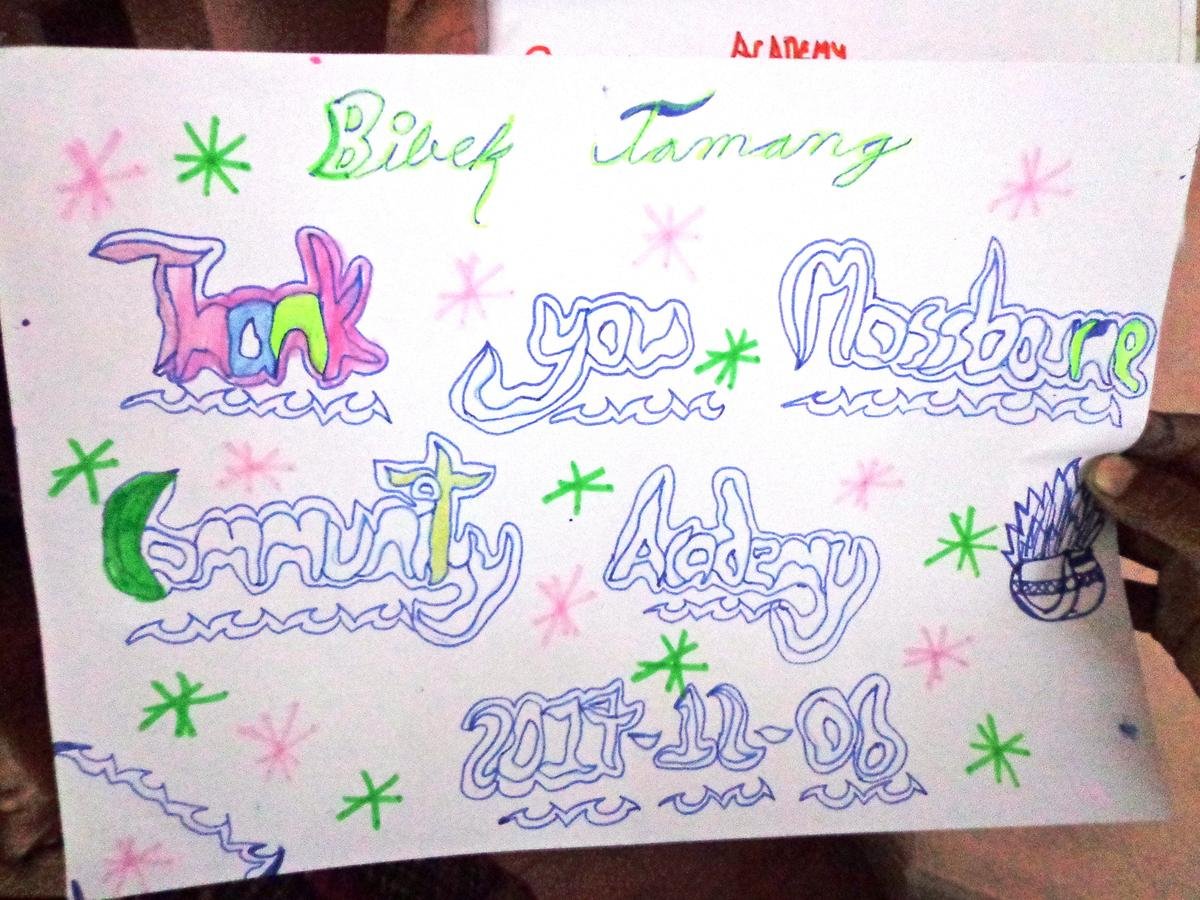 Academy
Bibek Tamang
Thank you Mossbourne
Community Academy
2017-11-06